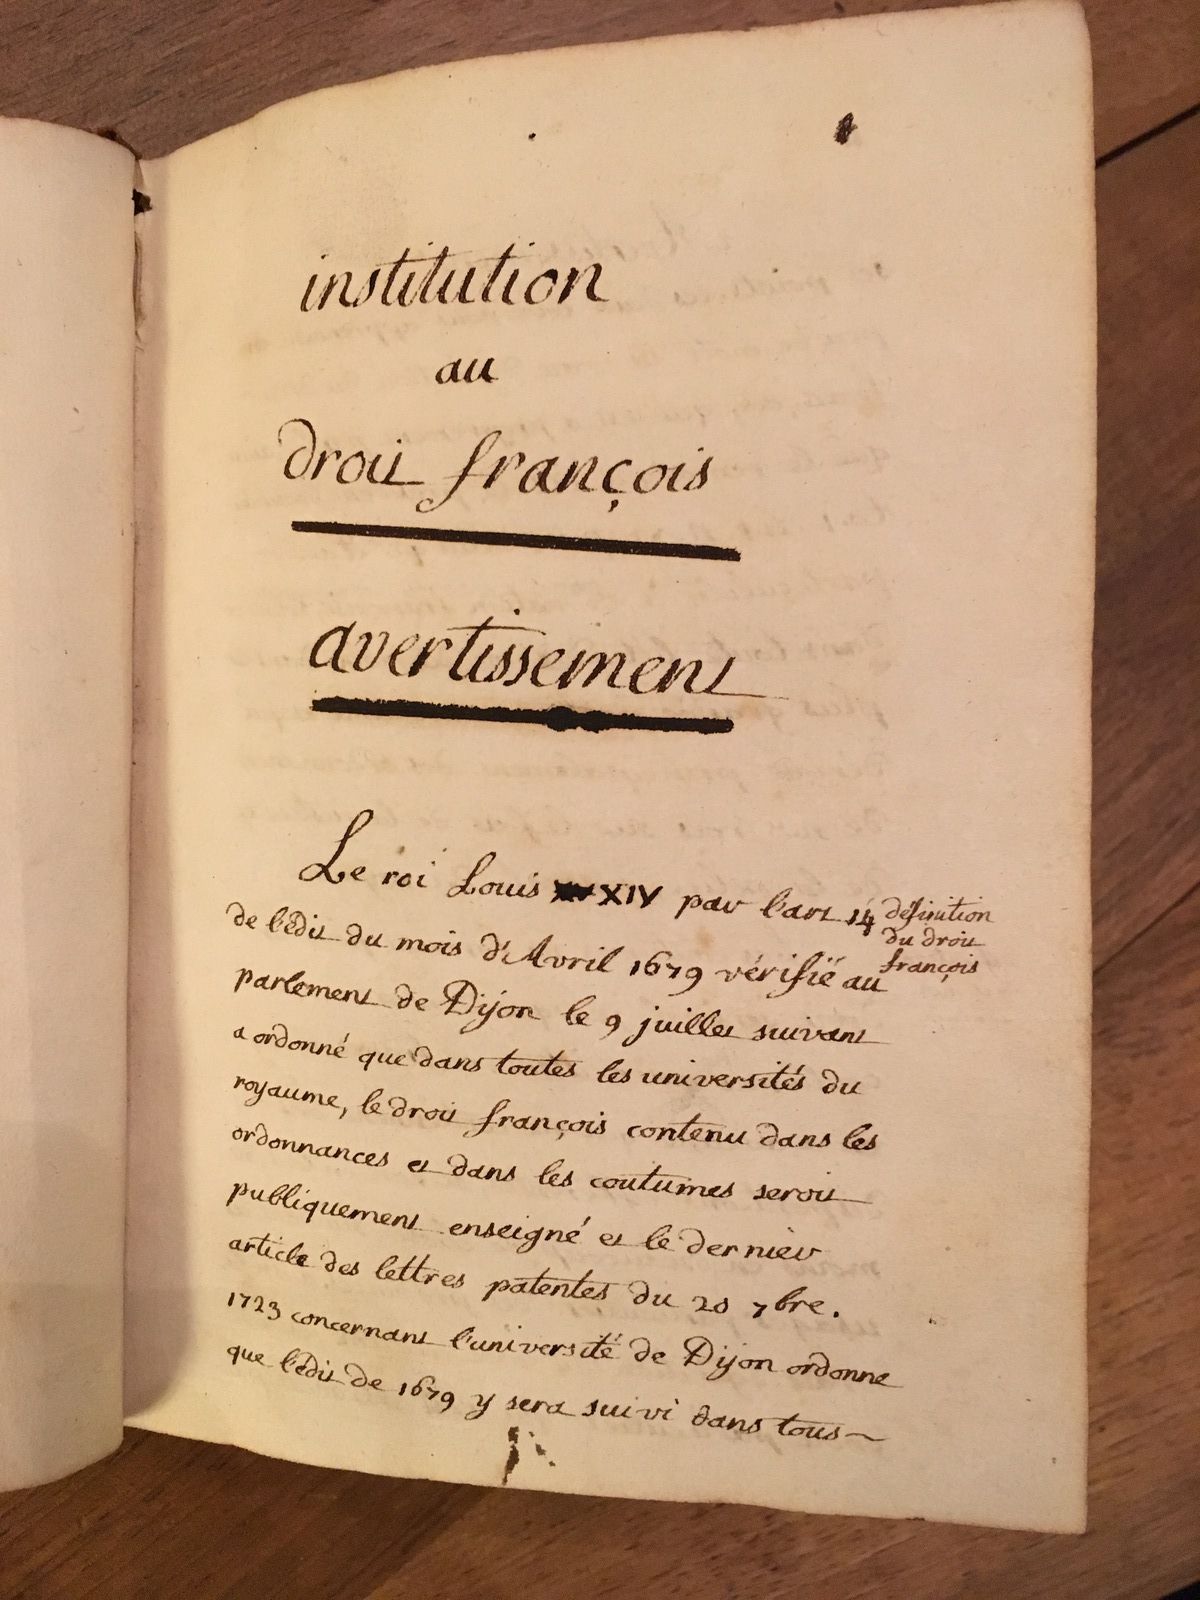 institution
au
droit françois
avertissement
Le roi Louis XIV par l'art 14
definition
du droit
françois
de l'édit du mois d'Avril 1679 vérifié au
parlement de Dijon le 9 juillet suivant
a ordonné que dans toutes les universités du
royaume, le droit françois contenu dans les
ordonnances et dans les coutumes seroit
publiquement enseigné et le dernier
article des lettres patentes du 20 7bre.
1723 concernant l'université de Dijon ordonne
que l'édit de 1679 y sera suivi dans tous